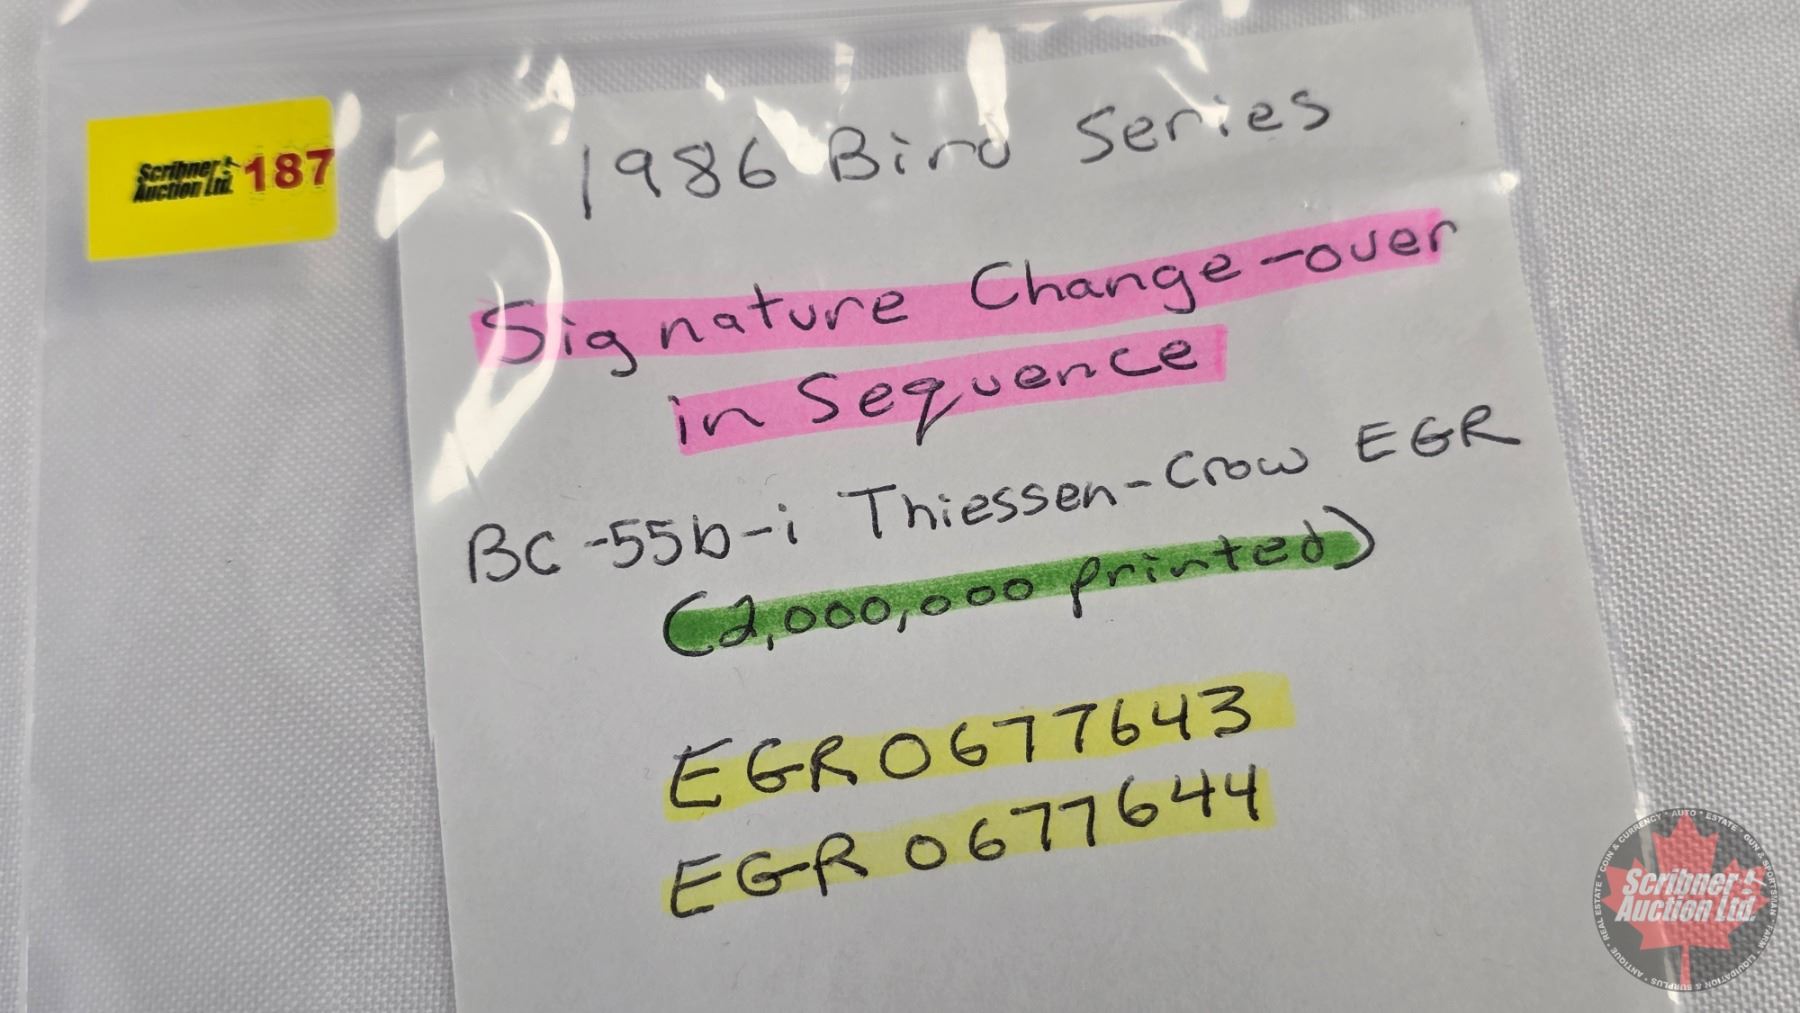 Scribner
Auction Ltd. 187
1986 Bird Series
Signature Change-over
in Sequence
BC-55b-i Thiessen-Crow EGR
(2,000,000 printed)
EGR 0677643
EGR 0677644
COIN & CURRENCY • AUTO • ESTATE • GUN & SPORTSMAN • FARM • LIQUIDATION & SURPLUS • ANTIQUE • REAL ESTATE
Scribner
Auction Ltd.